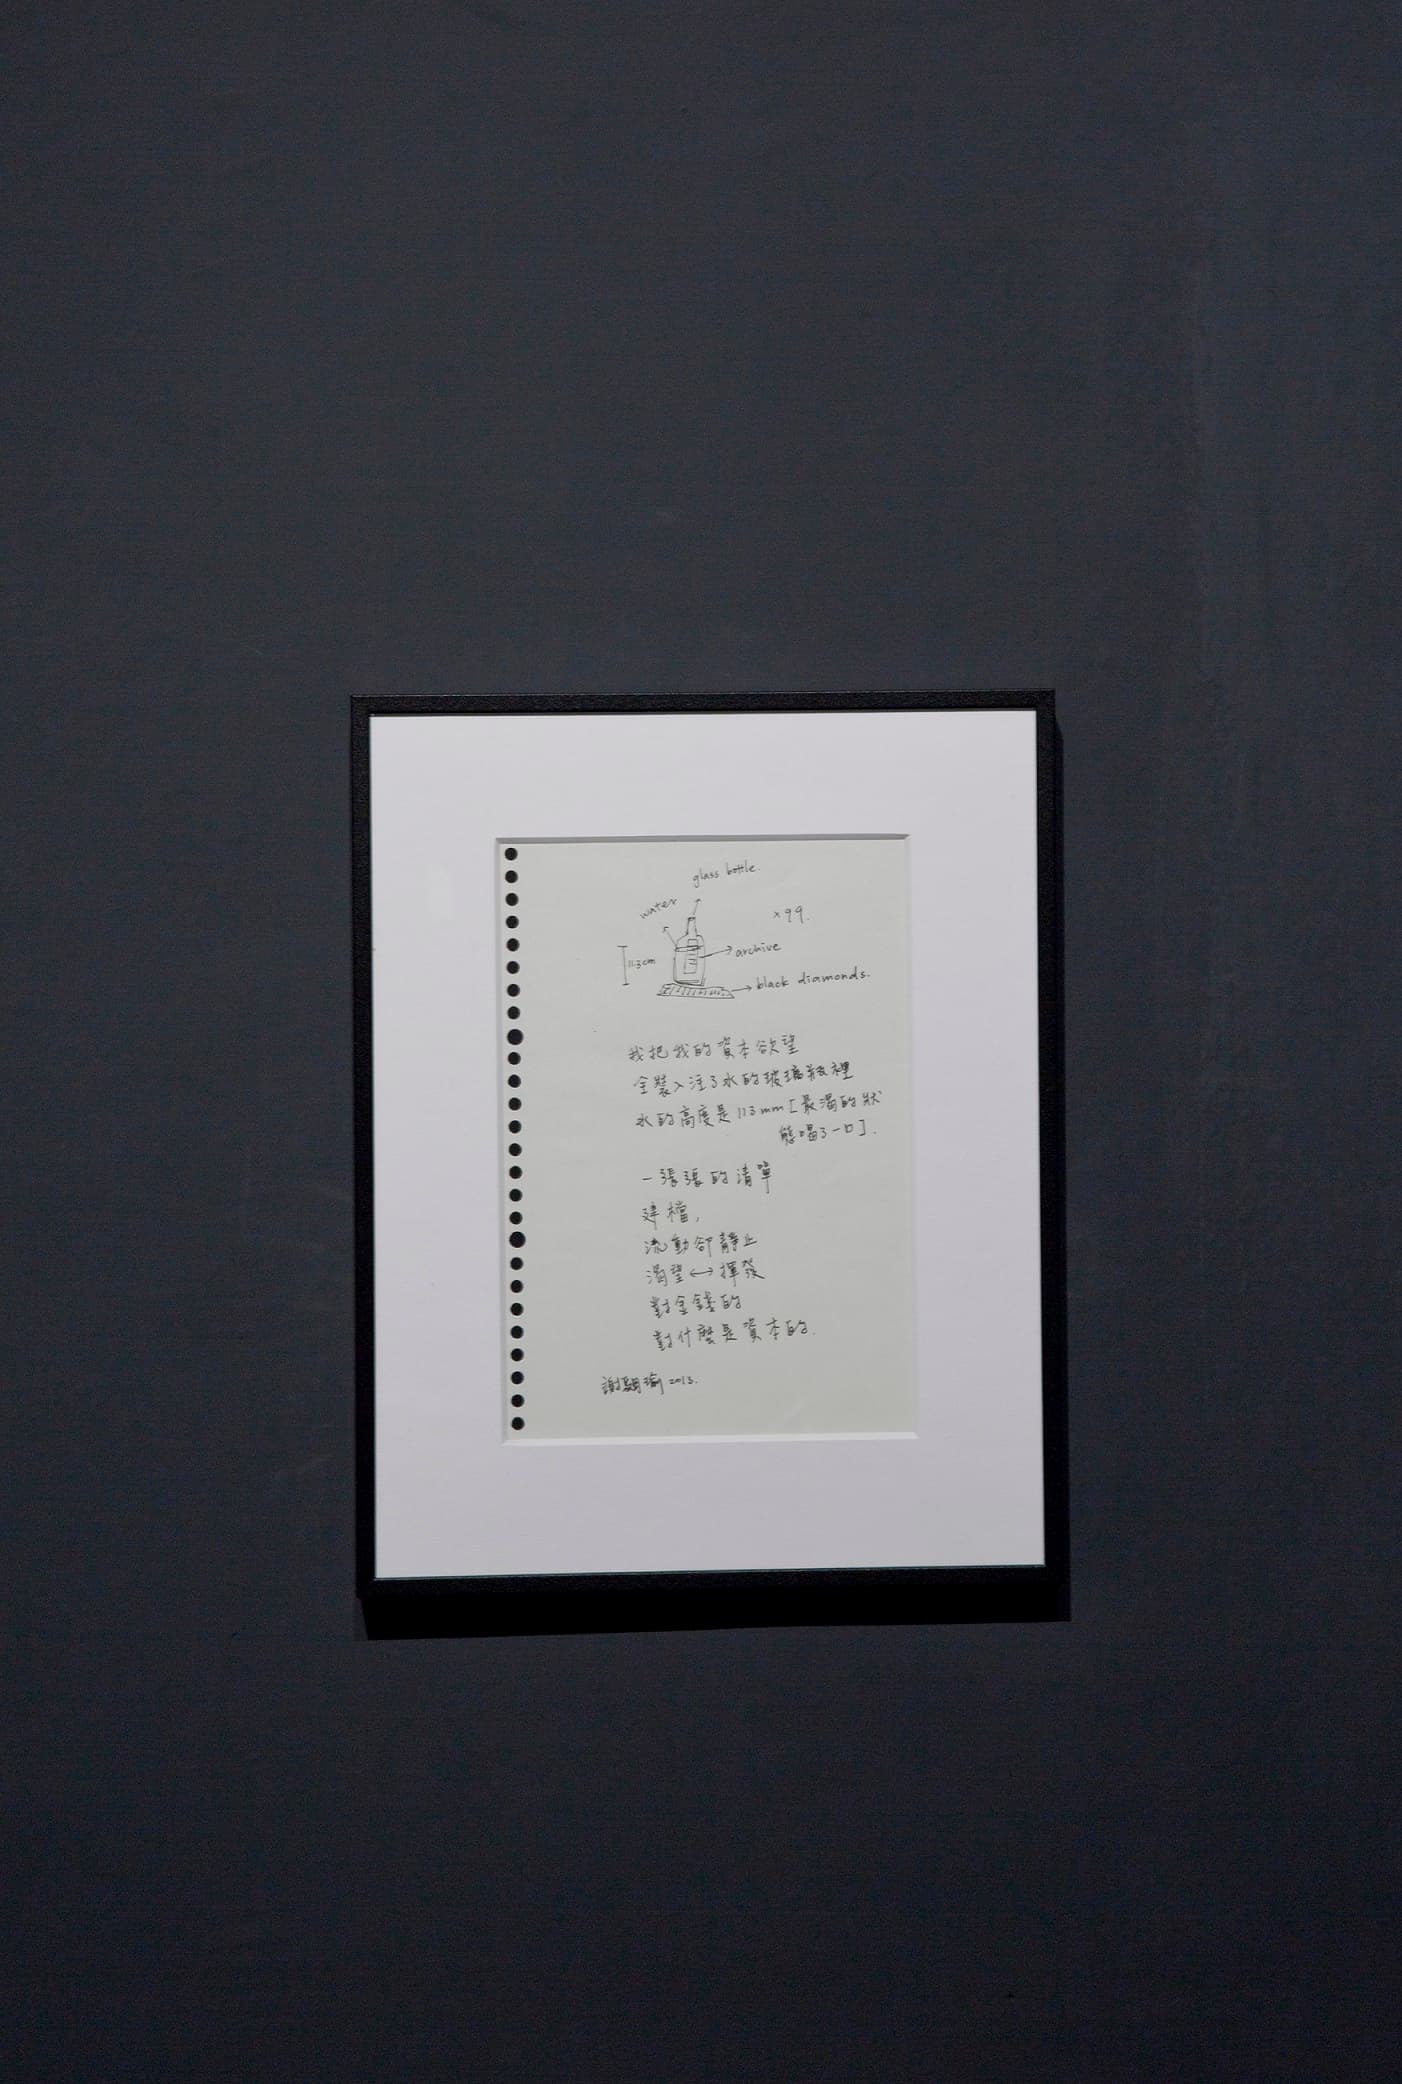 glass bottle.
water
×99.
11.3cm
archive
black diamonds.
我把我的資本欲望
全裝入注了水的玻璃瓶裡
水的高度是113mm[最渴的狀
態喝了一口].
一張張的清單
建檔,
流動卻靜止
渴望↔揮發
對金錢的
對什麼是資本的.
謝 瑜 2013.